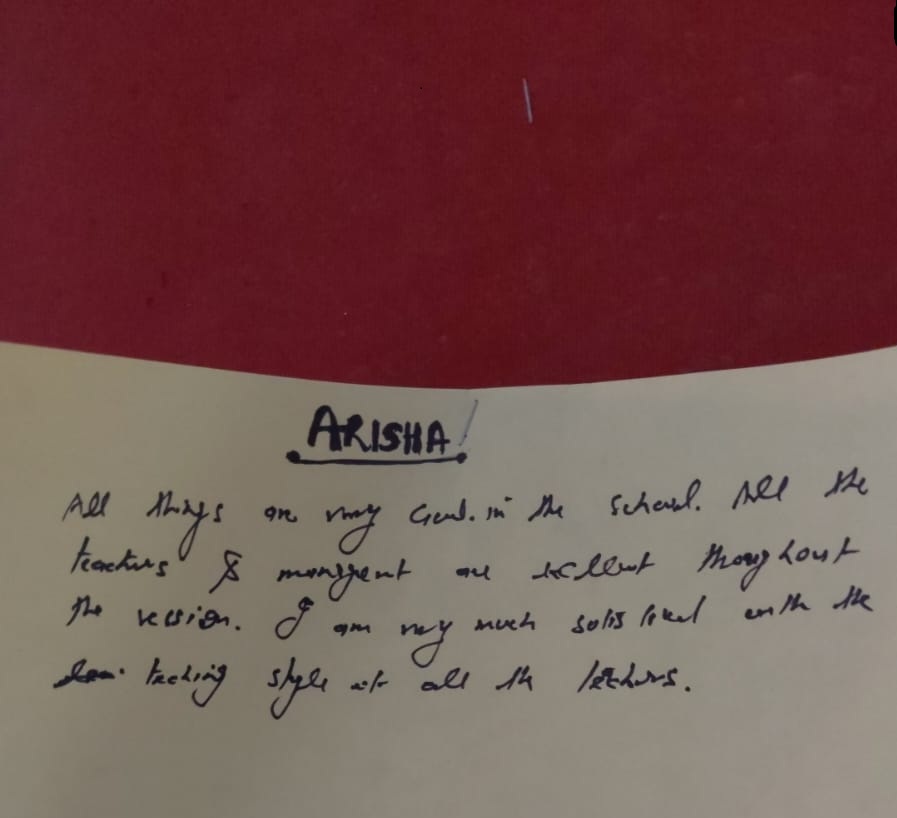 ARISHA
All things are very Good. in the School. All the
teachers & management are excellent throughout
the session. I am very much satisfied with the
teaching style of all the teachers.